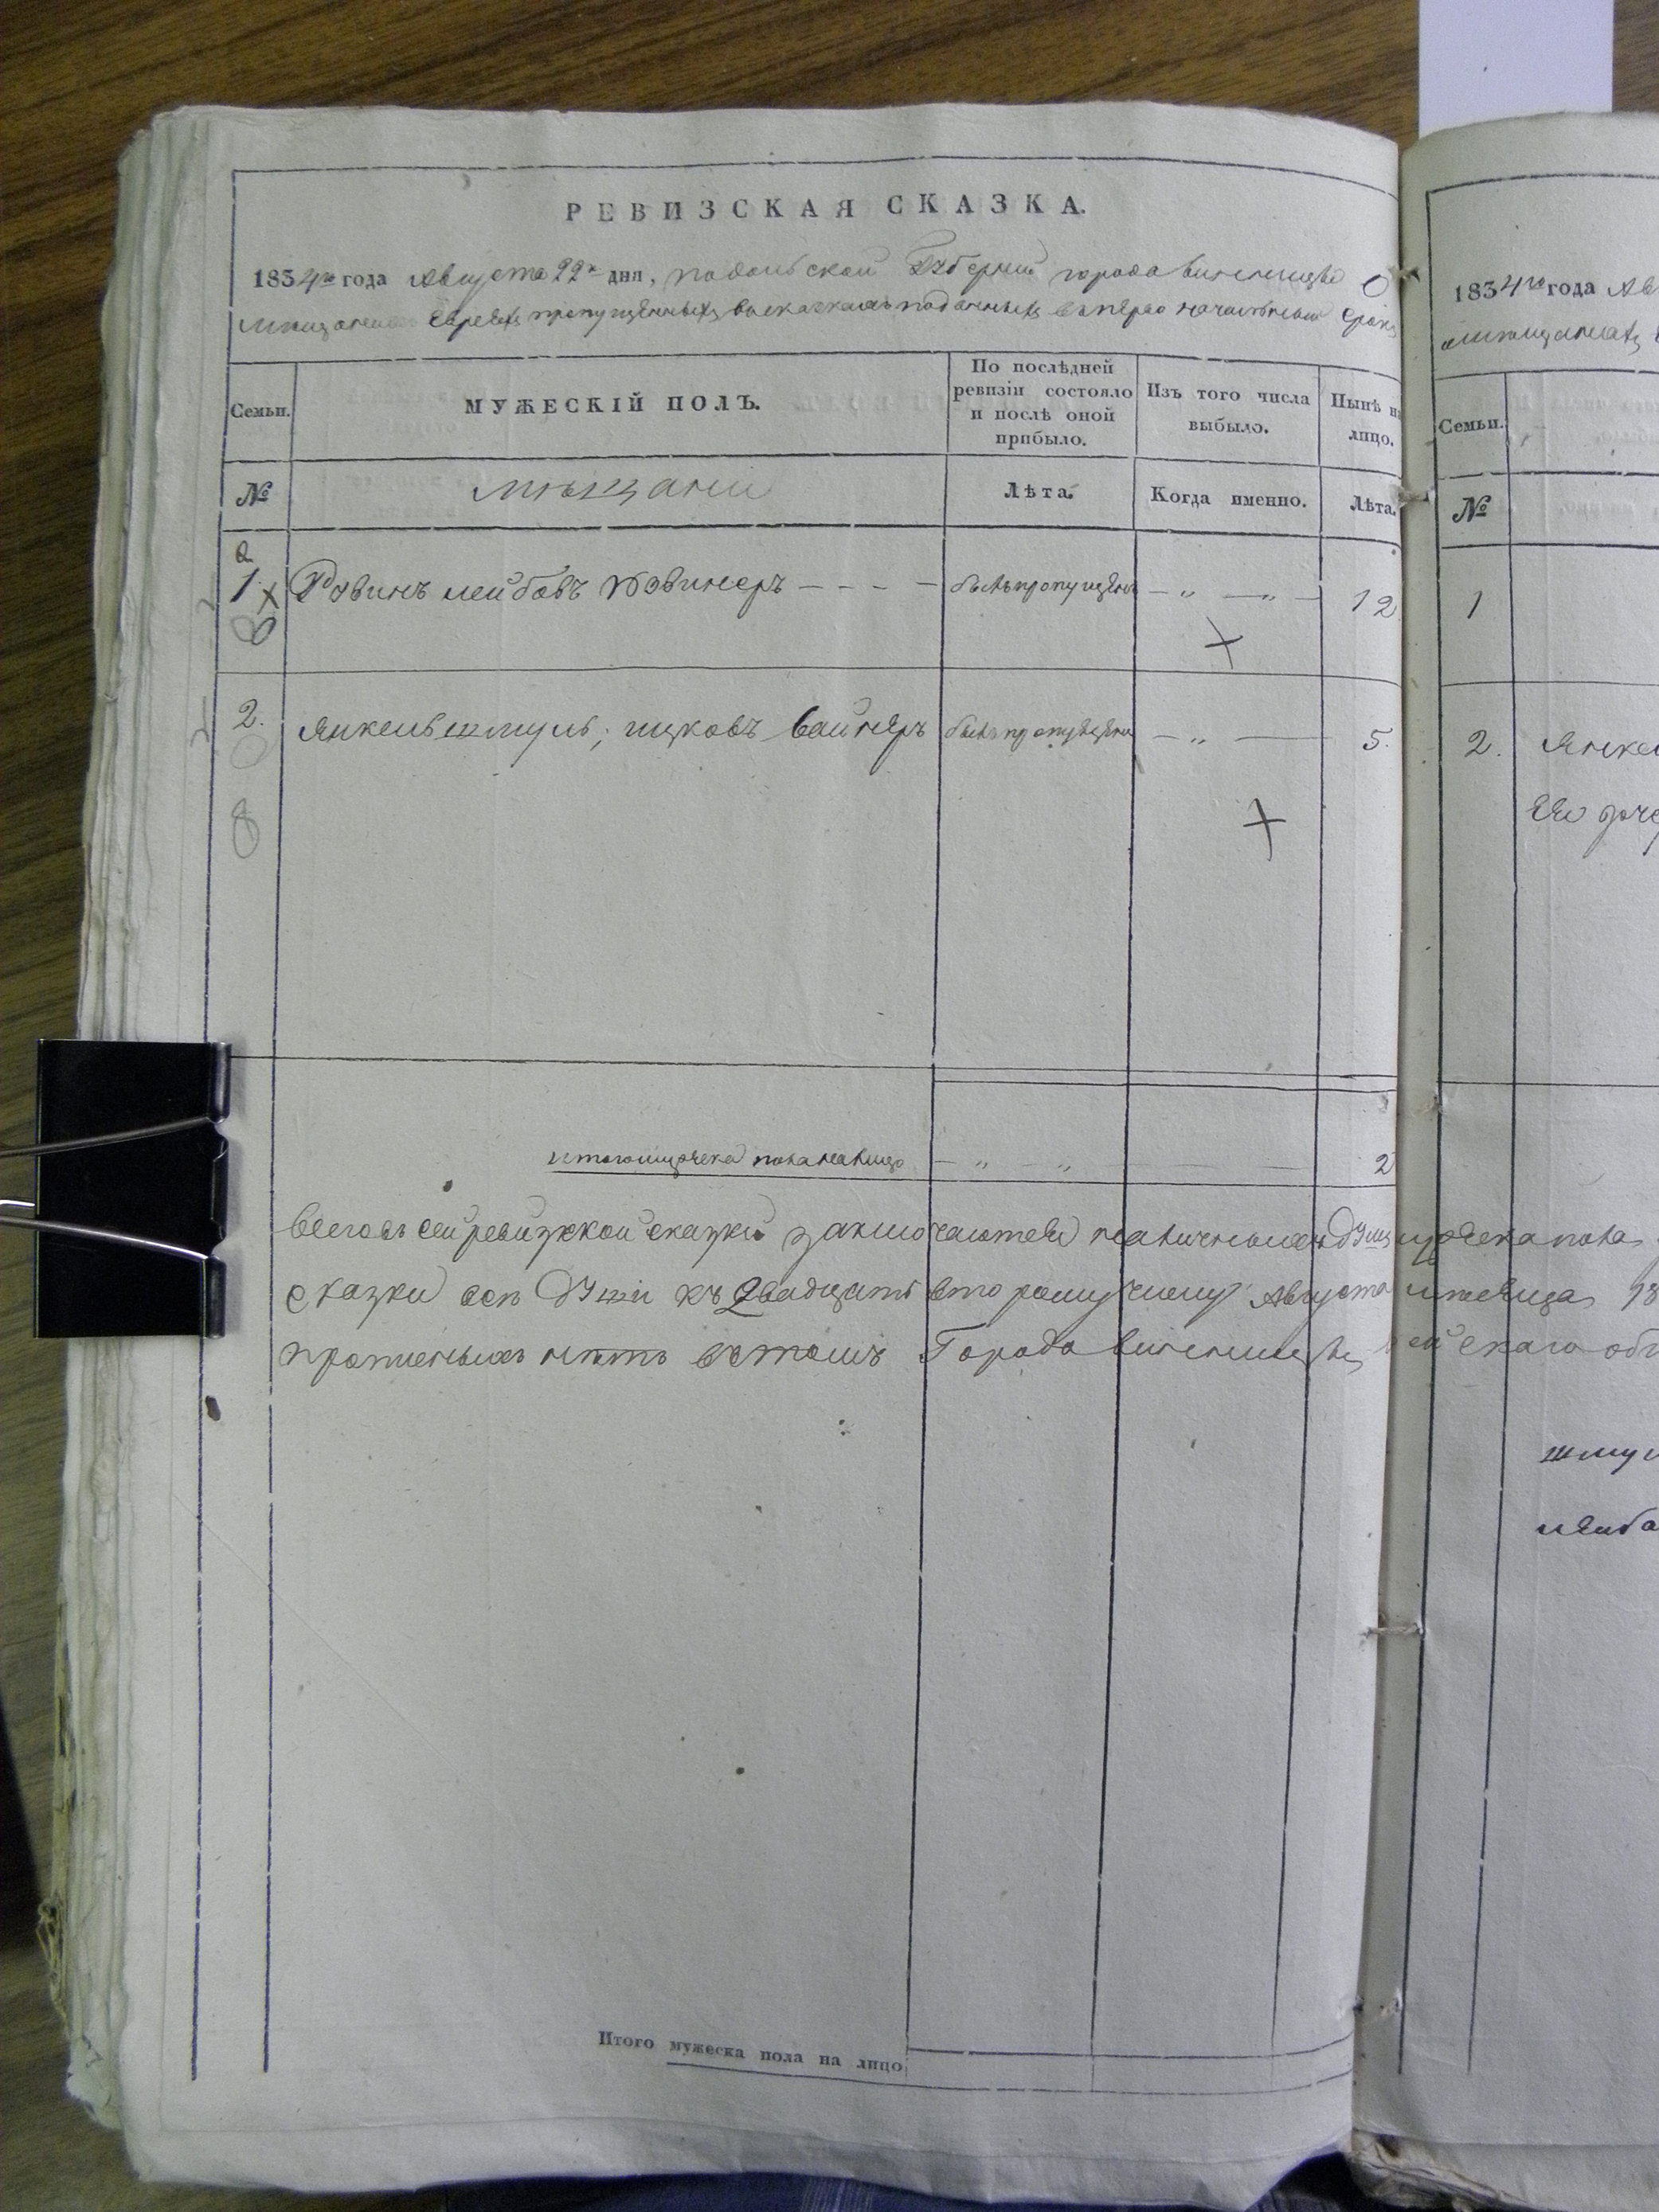 РЕВИЗСКАЯ СКАЗКА.
1834го года Августа 22го дня, подольской Губерніи города винницы О
мещанахъ евреяхъ пропущенныхъ въ сказкахъ поданныхъ въ перво начальный срокъ
Семьи.
МУЖЕСКІЙ ПОЛЪ.
По послѣдней
ревизіи состояло
и послѣ оной
прибыло.
Изъ того числа
выбыло.
Нынѣ на
лицо.
№
мѣщани
Лѣта.
Когда именно.
Лѣта.
1. лейбовъ былъ пропущенъ 12
2. Янкель шмуль, ицковъ вайнеръ былъ пропущенъ 5.
итого мужеска пола на лицо 2
всего въ сей ревизкой сказки заключается наличныхъ душъ мужеска пола
сказки сей души къ двадцать второму числу августа месяца 18
города
Итого мужеска пола на лицо
1834го года Ав
мещанахъ
Семьи.
№
1
2. Янкел
Его доче
шмул
лейба